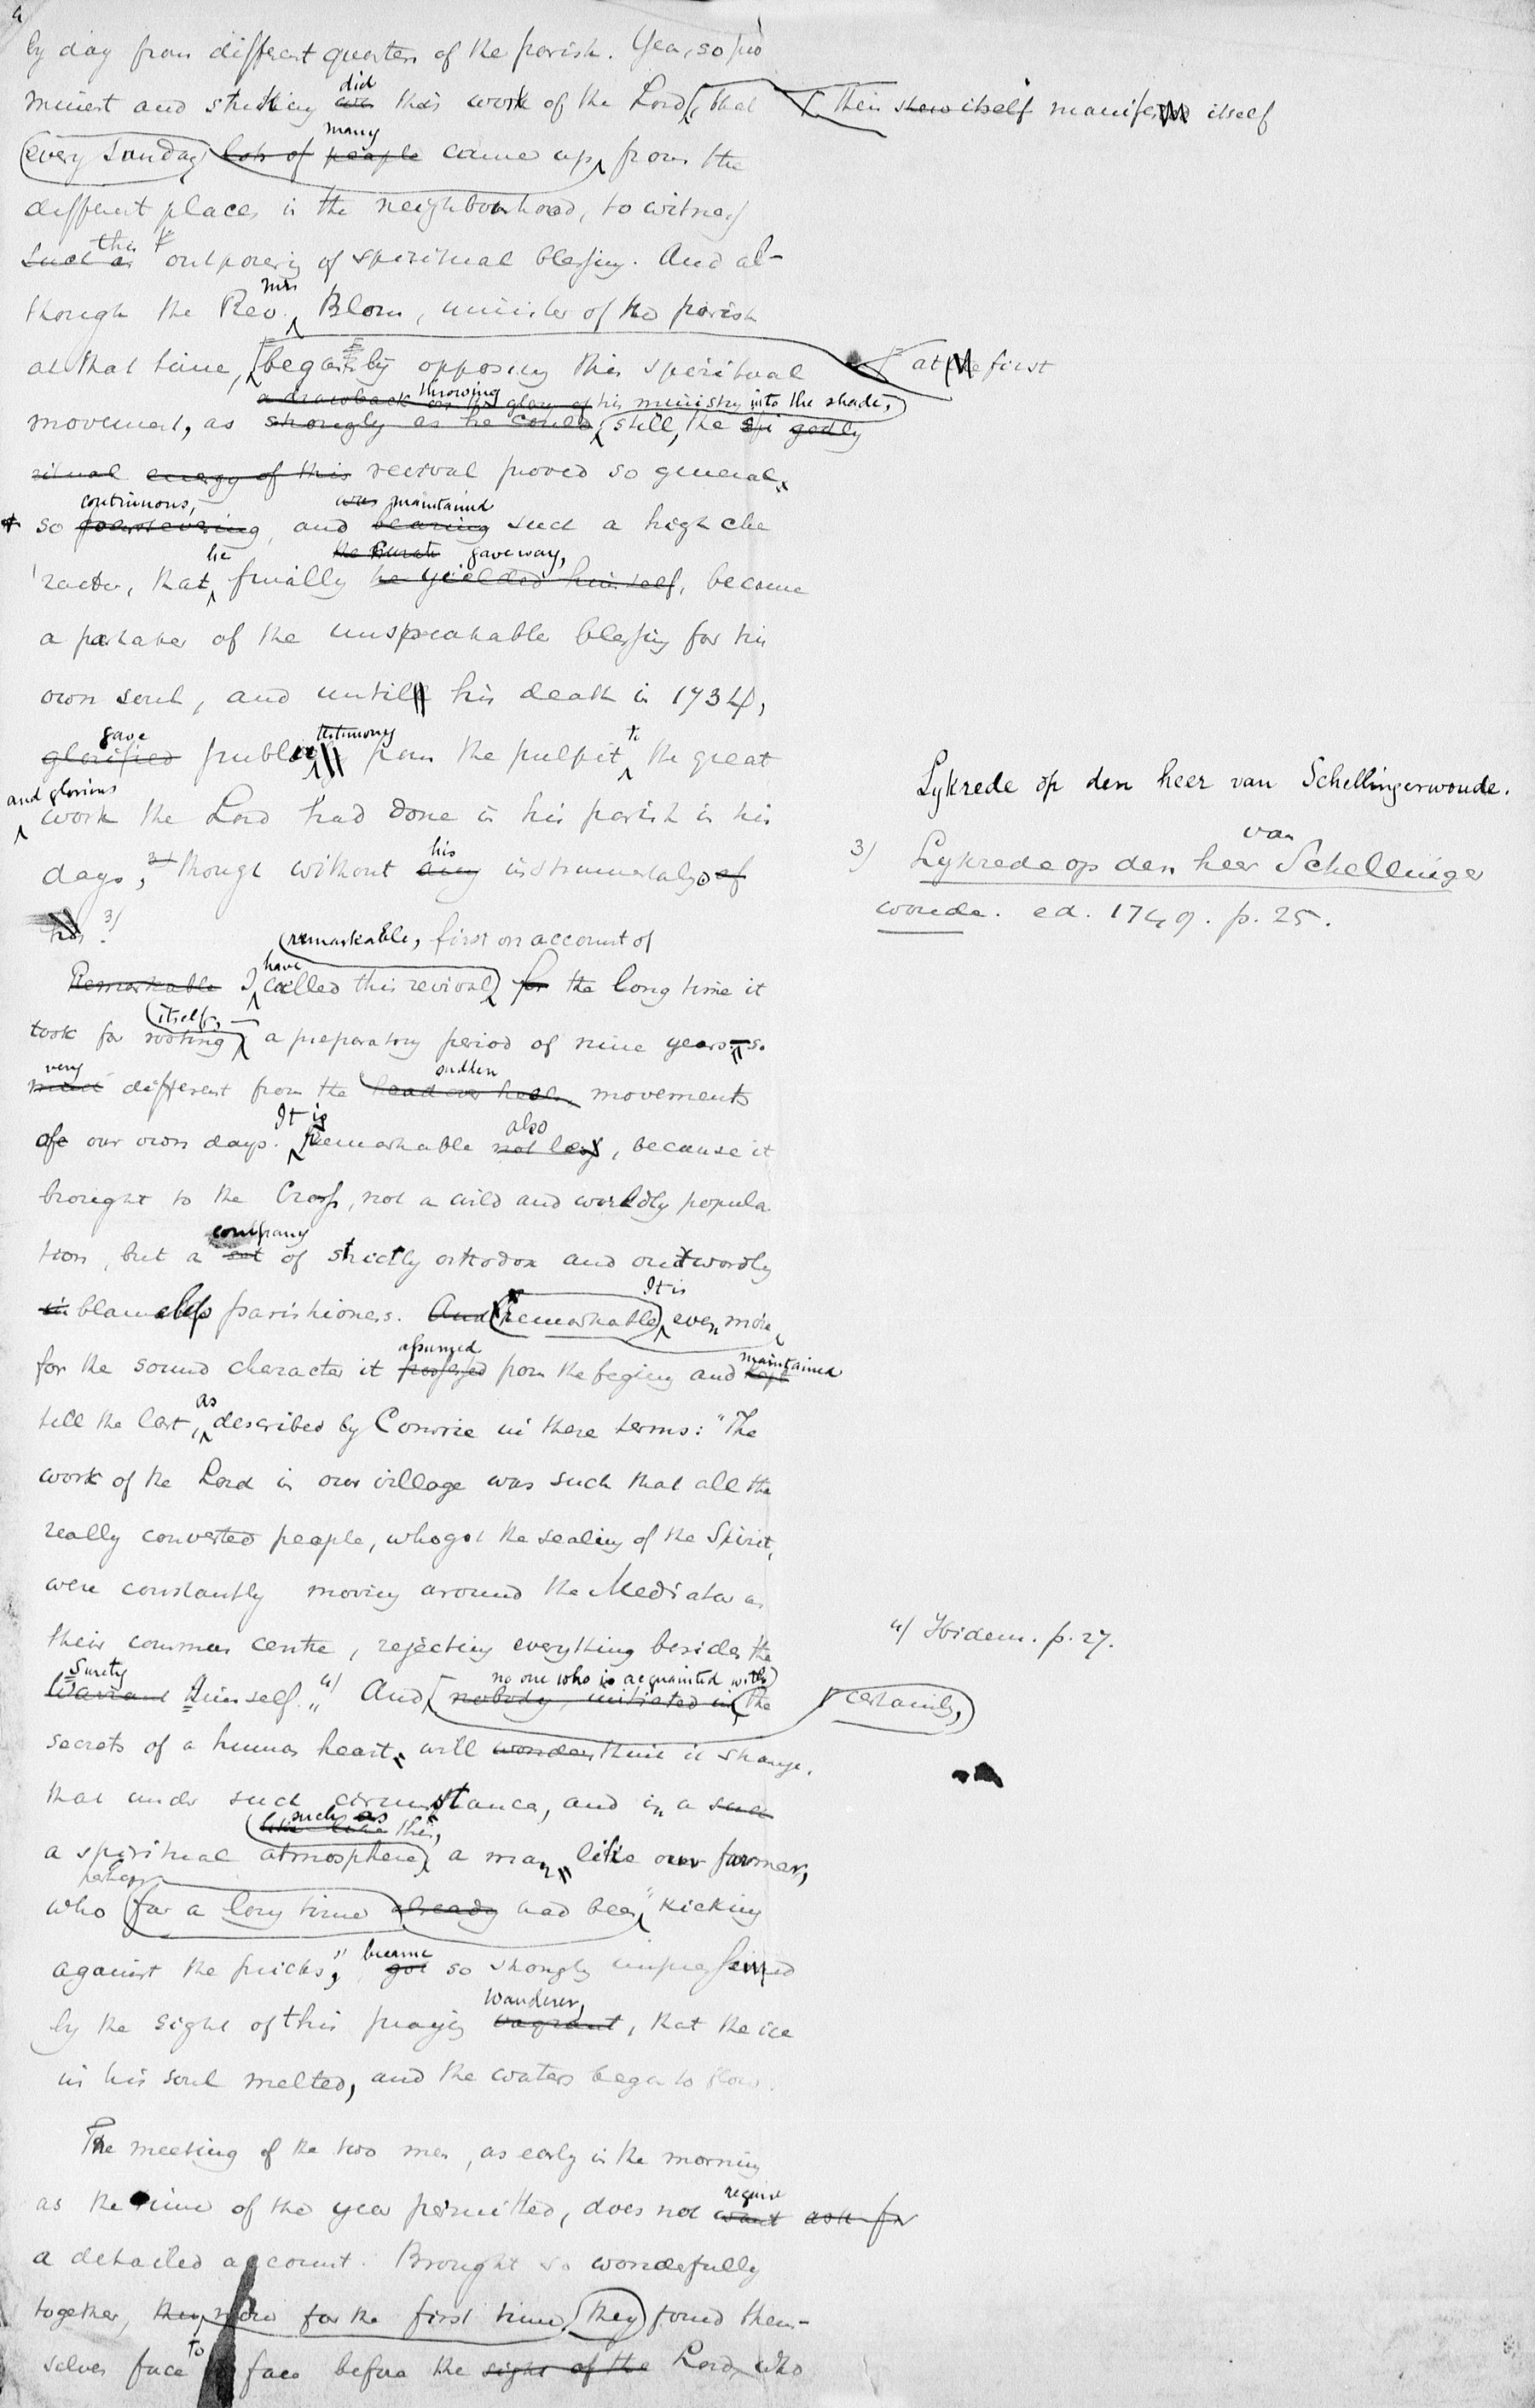 4
by day from different quarters of the parish. Yea, so pro
did
minent and striking was this work of the Lord, that
then shew itself manifested itself
many
every Sunday lots of people came up from the
different places in the neighbourhood, to witness
this
such an outpouring of spiritual blessing. And al-
Mr.
though the Rev. Blom, minister of the parish
at that time, began by opposing this spiritual
at the first
a drawback on the glory of throwing his ministry into the shade,
movement, as strongly as he could, still, the spi godly
ritual energy of this revival proved so general,
continuous, was maintained
so persevering, and bearing such a high cha
he gave way,
racter, that finally he yielded himself, became
a partaker of the unspeakable blessing for his
own soul, and until his death in 1734,
gave testimony to
glorified public from the pulpit the great
and glorious
work the Lord had done in his parish in his
his
days, though without any instrumentality of
his. 3)
Lykrede op den heer van Schellingerwoude.
van
3) Lykrede op den heer Schellinger
woude. ed. 1749. p. 25.
remarkable, first on account of
have
Remarkable I called this revival for the long time it
itself,
took for rooting a preparatory period of nine years – so
very sudden
much different from the head over heels movements
It is also
of our own days. Remarkable not less, because it
brought to the Cross, not a wild and worldly popula
company
tion, but a set of strictly orthodox and outwordly
It is
in blameless parishioners. And remarkable even more
assumed maintained
for the sound character it professed from the begining and kept
as
till the last, described by Comrie in these terms: "The
work of the Lord in our village was such that all the
really converted people, who got the sealing of the Spirit,
were constantly moving around the Mediator as
their common centre, rejecting everything besides the
4) Ibidem. p. 27.
Surety no one who is acquainted with
Warrant Himself." 4) And nobody, initiated in the
certainly,
secrets of a human heart, will wonder think it strange,
that under such circumstance, and in a such
such as this,
a spiritual atmosphere, a man, like our farmer,
perhaps
who for a long time already had been "kicking
became
against the pricks," got so strongly impressed
wanderer,
by the sight of this praying vagrant, that the ice
in his soul melted, and the waters began to flow.
The meeting of the two men, as early in the morning
require
as the time of the year permitted, does not want ask for
a detailed account. Brought so wonderfully
together, they now for the first time they found them-
to
selves face face before the sight of the Lord, who